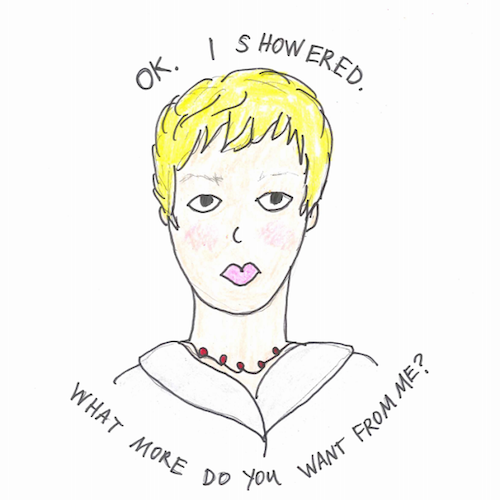 OK. I SHOWERED.
WHAT MORE DO YOU WANT FROM ME?